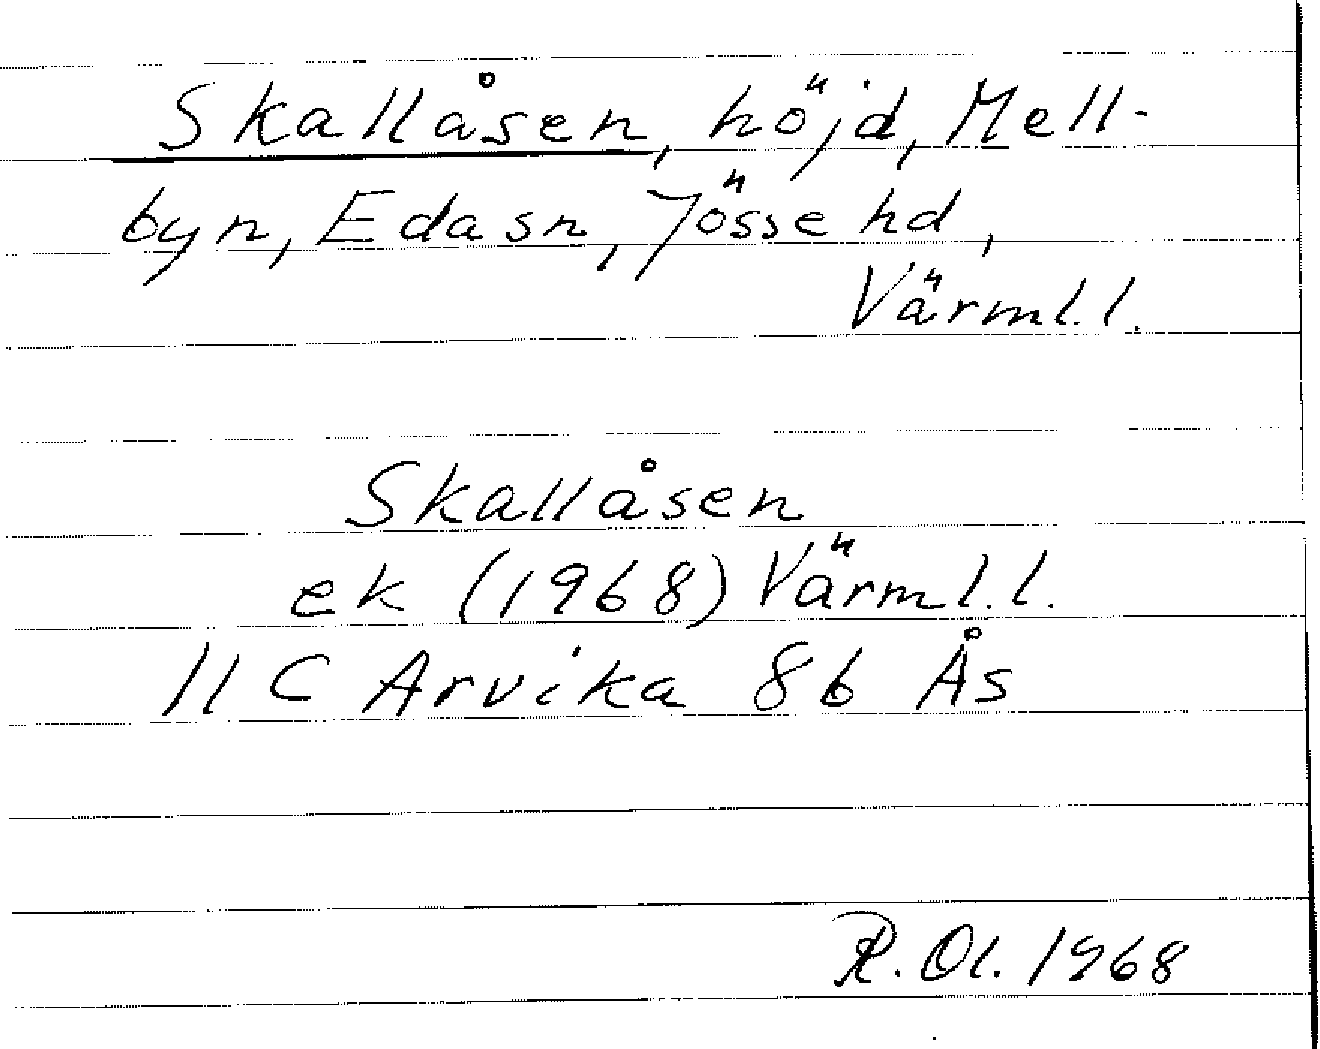 Skallåsen, höjd, Mell-
byn, Eda sn, Jösse hd,
Värml. l.
Skallåsen
ek (1968) Värml. l.
11 C Arvika 8b Ås
R. Ol. 1968